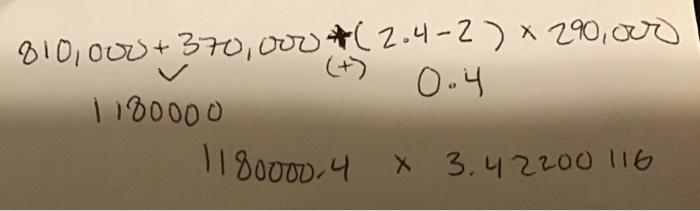 810,000 + 370,000 + (2.4 - 2) × 290,000
(+) 0.4
1180000
1180000.4 × 3.42200116